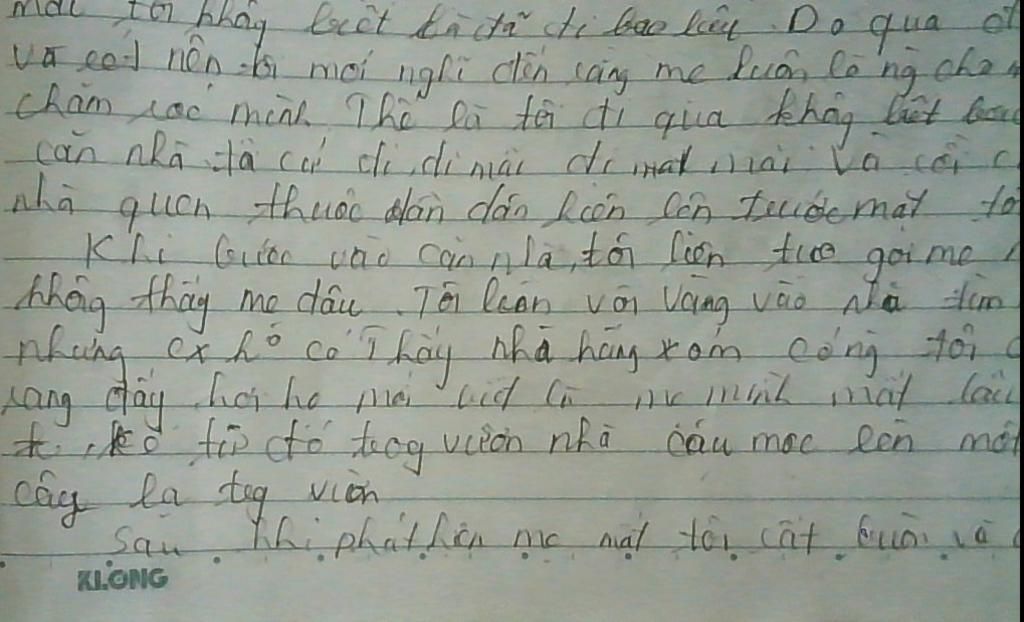 tôi không biết đã đi bao lâu. Do quá
và nên tôi mới nghĩ đến rằng mẹ luôn chăm
chăm sóc mình. Thế là tôi đi qua không biết bao
căn nhà, tà cứ đi, đi mãi đi mai và cái
nhà quen thuộc dần dần hiện lên trước mặt tô
Khi bước vào căn nhà, tôi liên tục gọi mẹ
không thấy mẹ đâu. Tôi vội vàng vào nhà tìm
nhưng cx hổ có Thấy nhà hàng xóm cóng tôi
sang đấy hỏi họ mới biết là mẹ mình mất
từ đó trog vườn nhà cậu mọc lên mộ
cây lạ trg vườn
Sau khi phát hiện mẹ mất tôi rất buồn và
KLONG